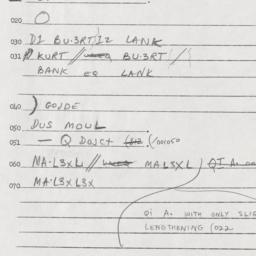 020 O
030 DI BU·3RT12 LANK
031 KURT // BU·3RT /
BANK EQ LANK
040 ) GOJDE
050 DUS MOUL .
051 — Q DOJCT (/001050
060 MA·L3XLI // MAL3XL ) QI A.
070 MA·L3XL3X
QI A. WITH ONLY SLIG
LENGTHENING (022